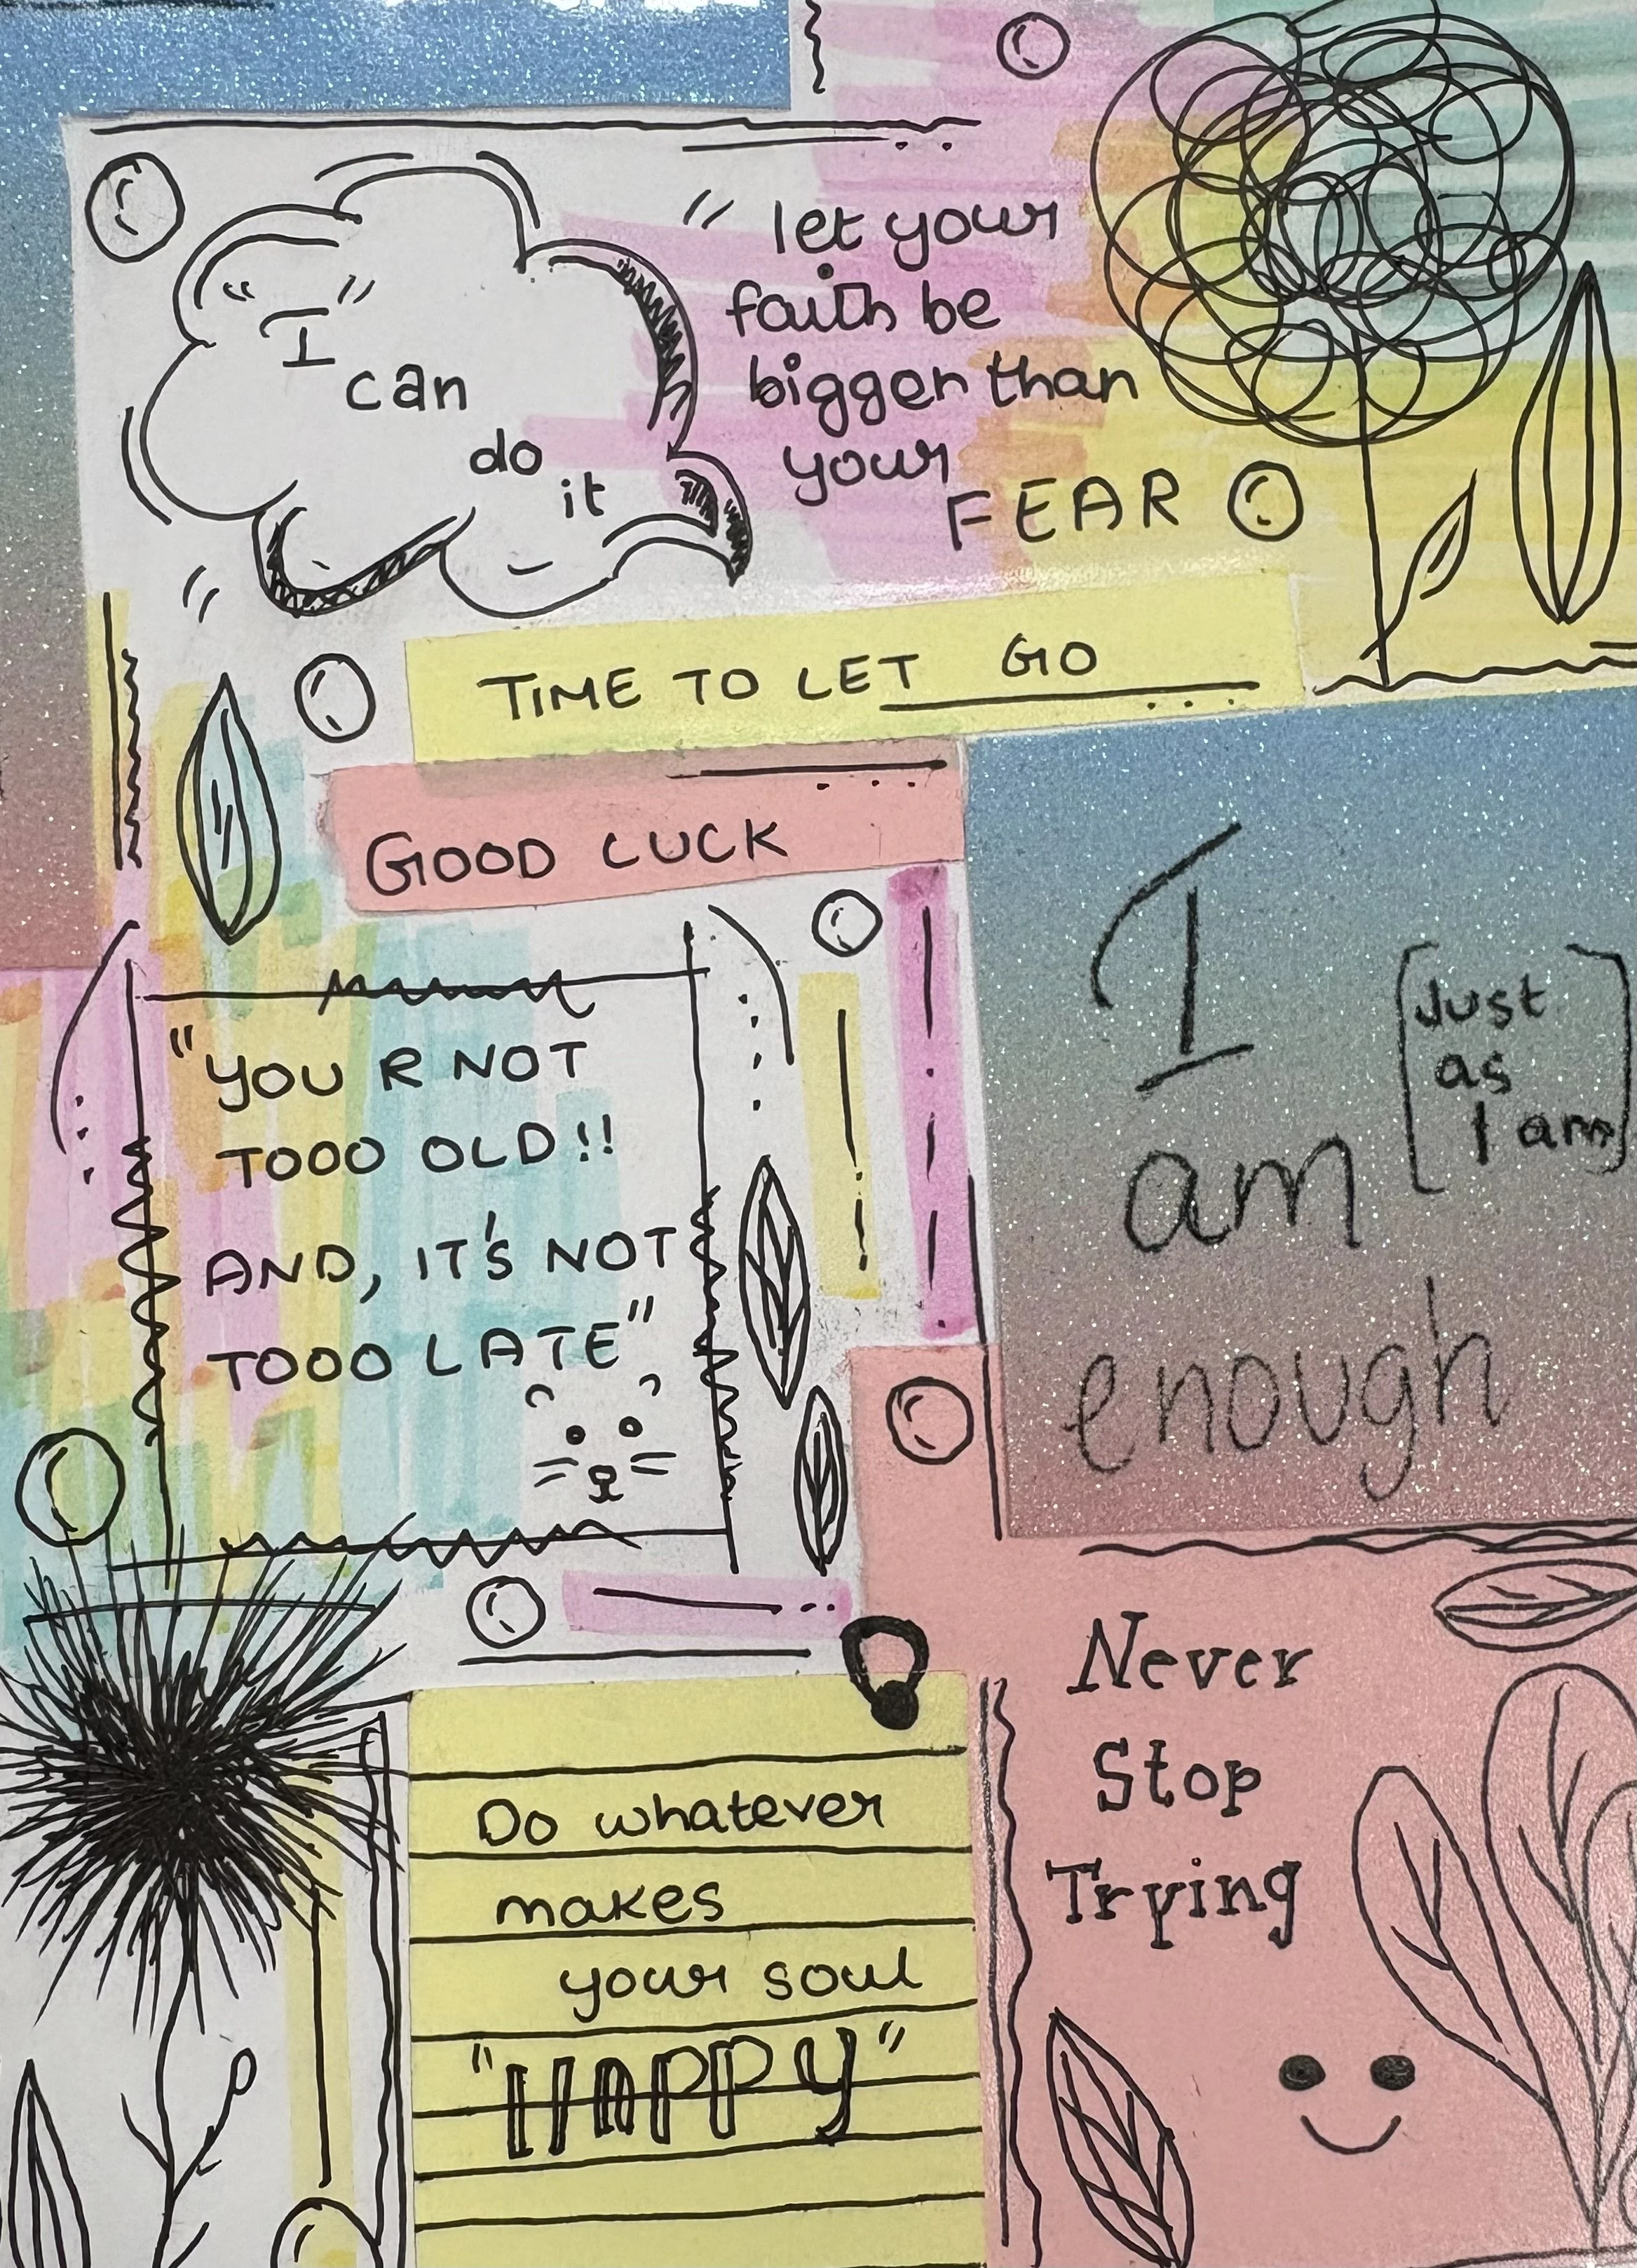 "I
can
do
it"
"let your
faith be
bigger than
your
FEAR
TIME TO LET GO
GOOD LUCK
"YOU R NOT
TOOO OLD!!
AND, IT'S NOT
TOOO LATE"
I
am
enough
[Just
as
I am]
Do whatever
makes
your soul
"HAPPY"
Never
Stop
Trying